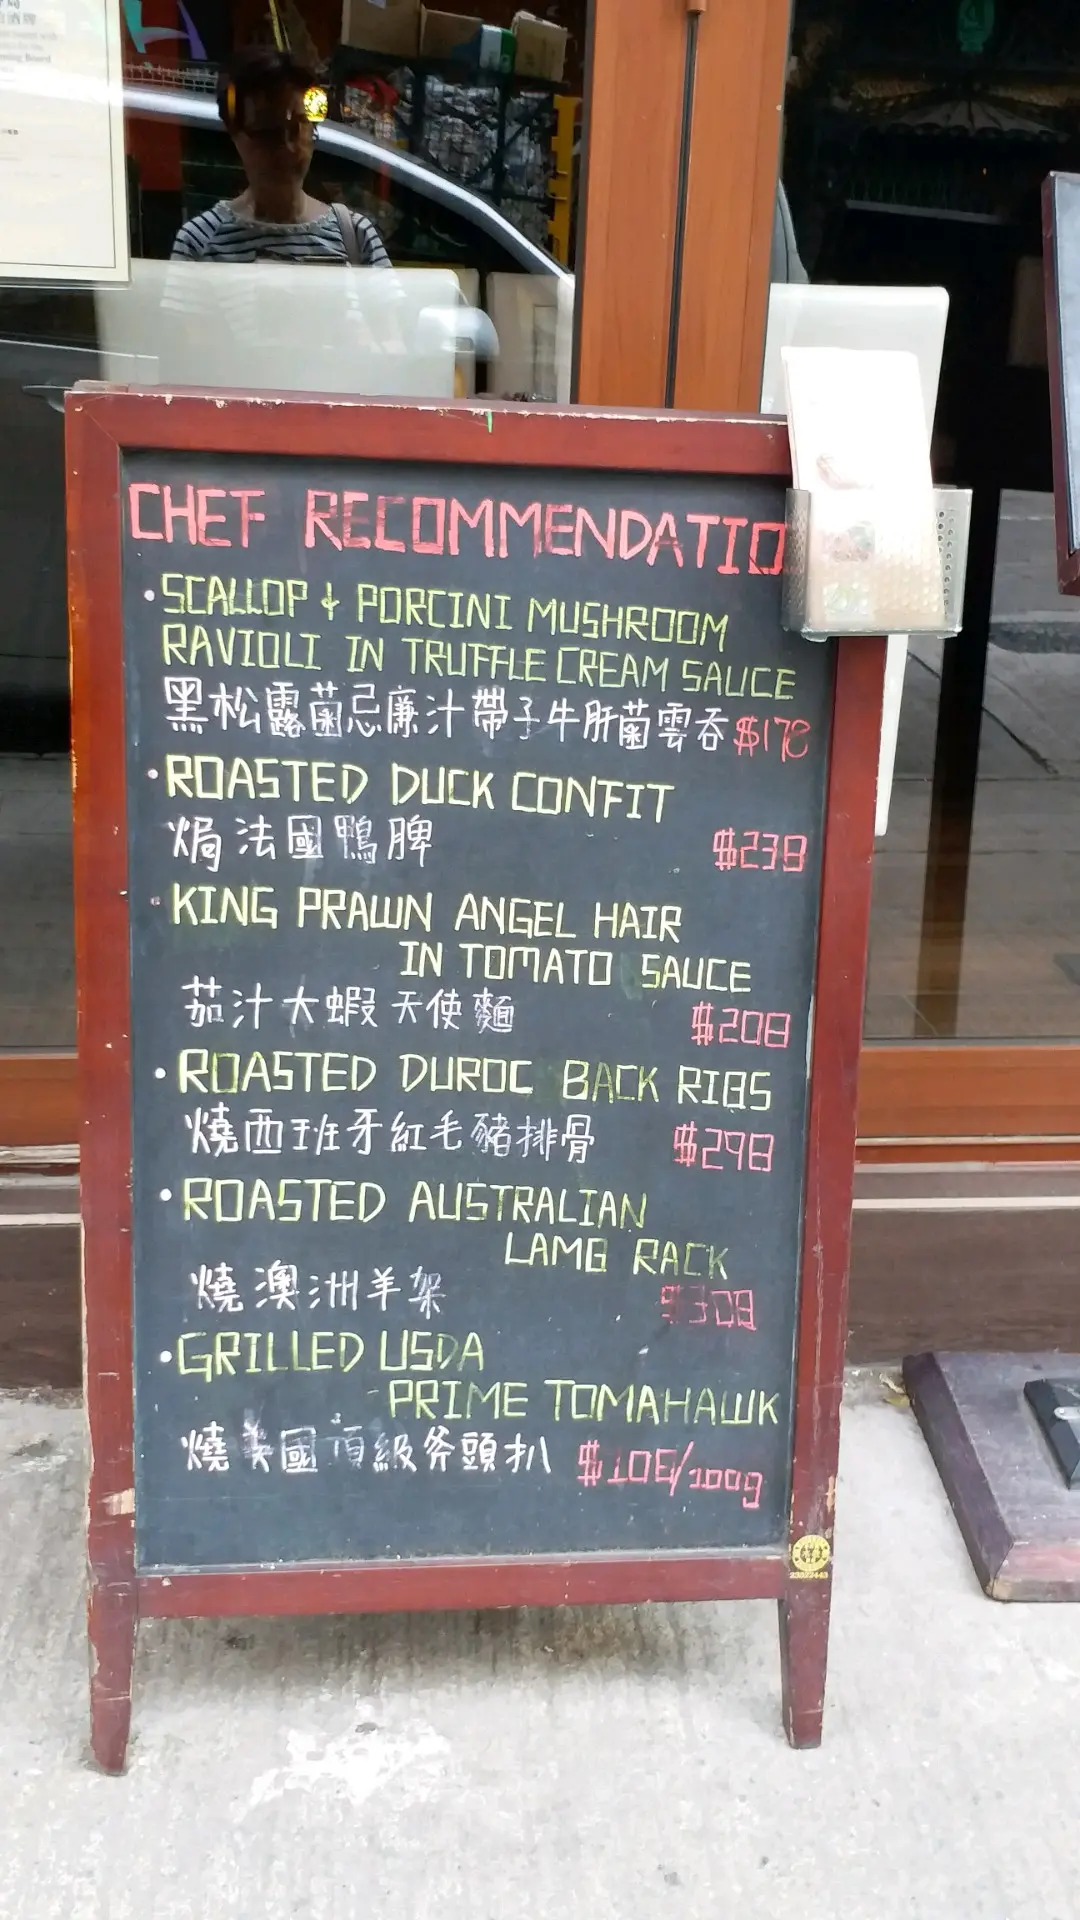 CHEF RECOMMENDATIO
• SCALLOP & PORCINI MUSHROOM
RAVIOLI IN TRUFFLE CREAM SAUCE
黑松露菌忌廉汁帶子牛肝菌雲吞 $178
• ROASTED DUCK CONFIT
焗法國鴨脾 $238
• KING PRAWN ANGEL HAIR
IN TOMATO SAUCE
茄汁大蝦天使麵 $208
• ROASTED DUROC BACK RIBS
燒西班牙紅毛豬排骨 $298
• ROASTED AUSTRALIAN
LAMB RACK
燒澳洲羊架 $308
• GRILLED USDA
PRIME TOMAHAWK
燒美國頂級斧頭扒 $106/100g